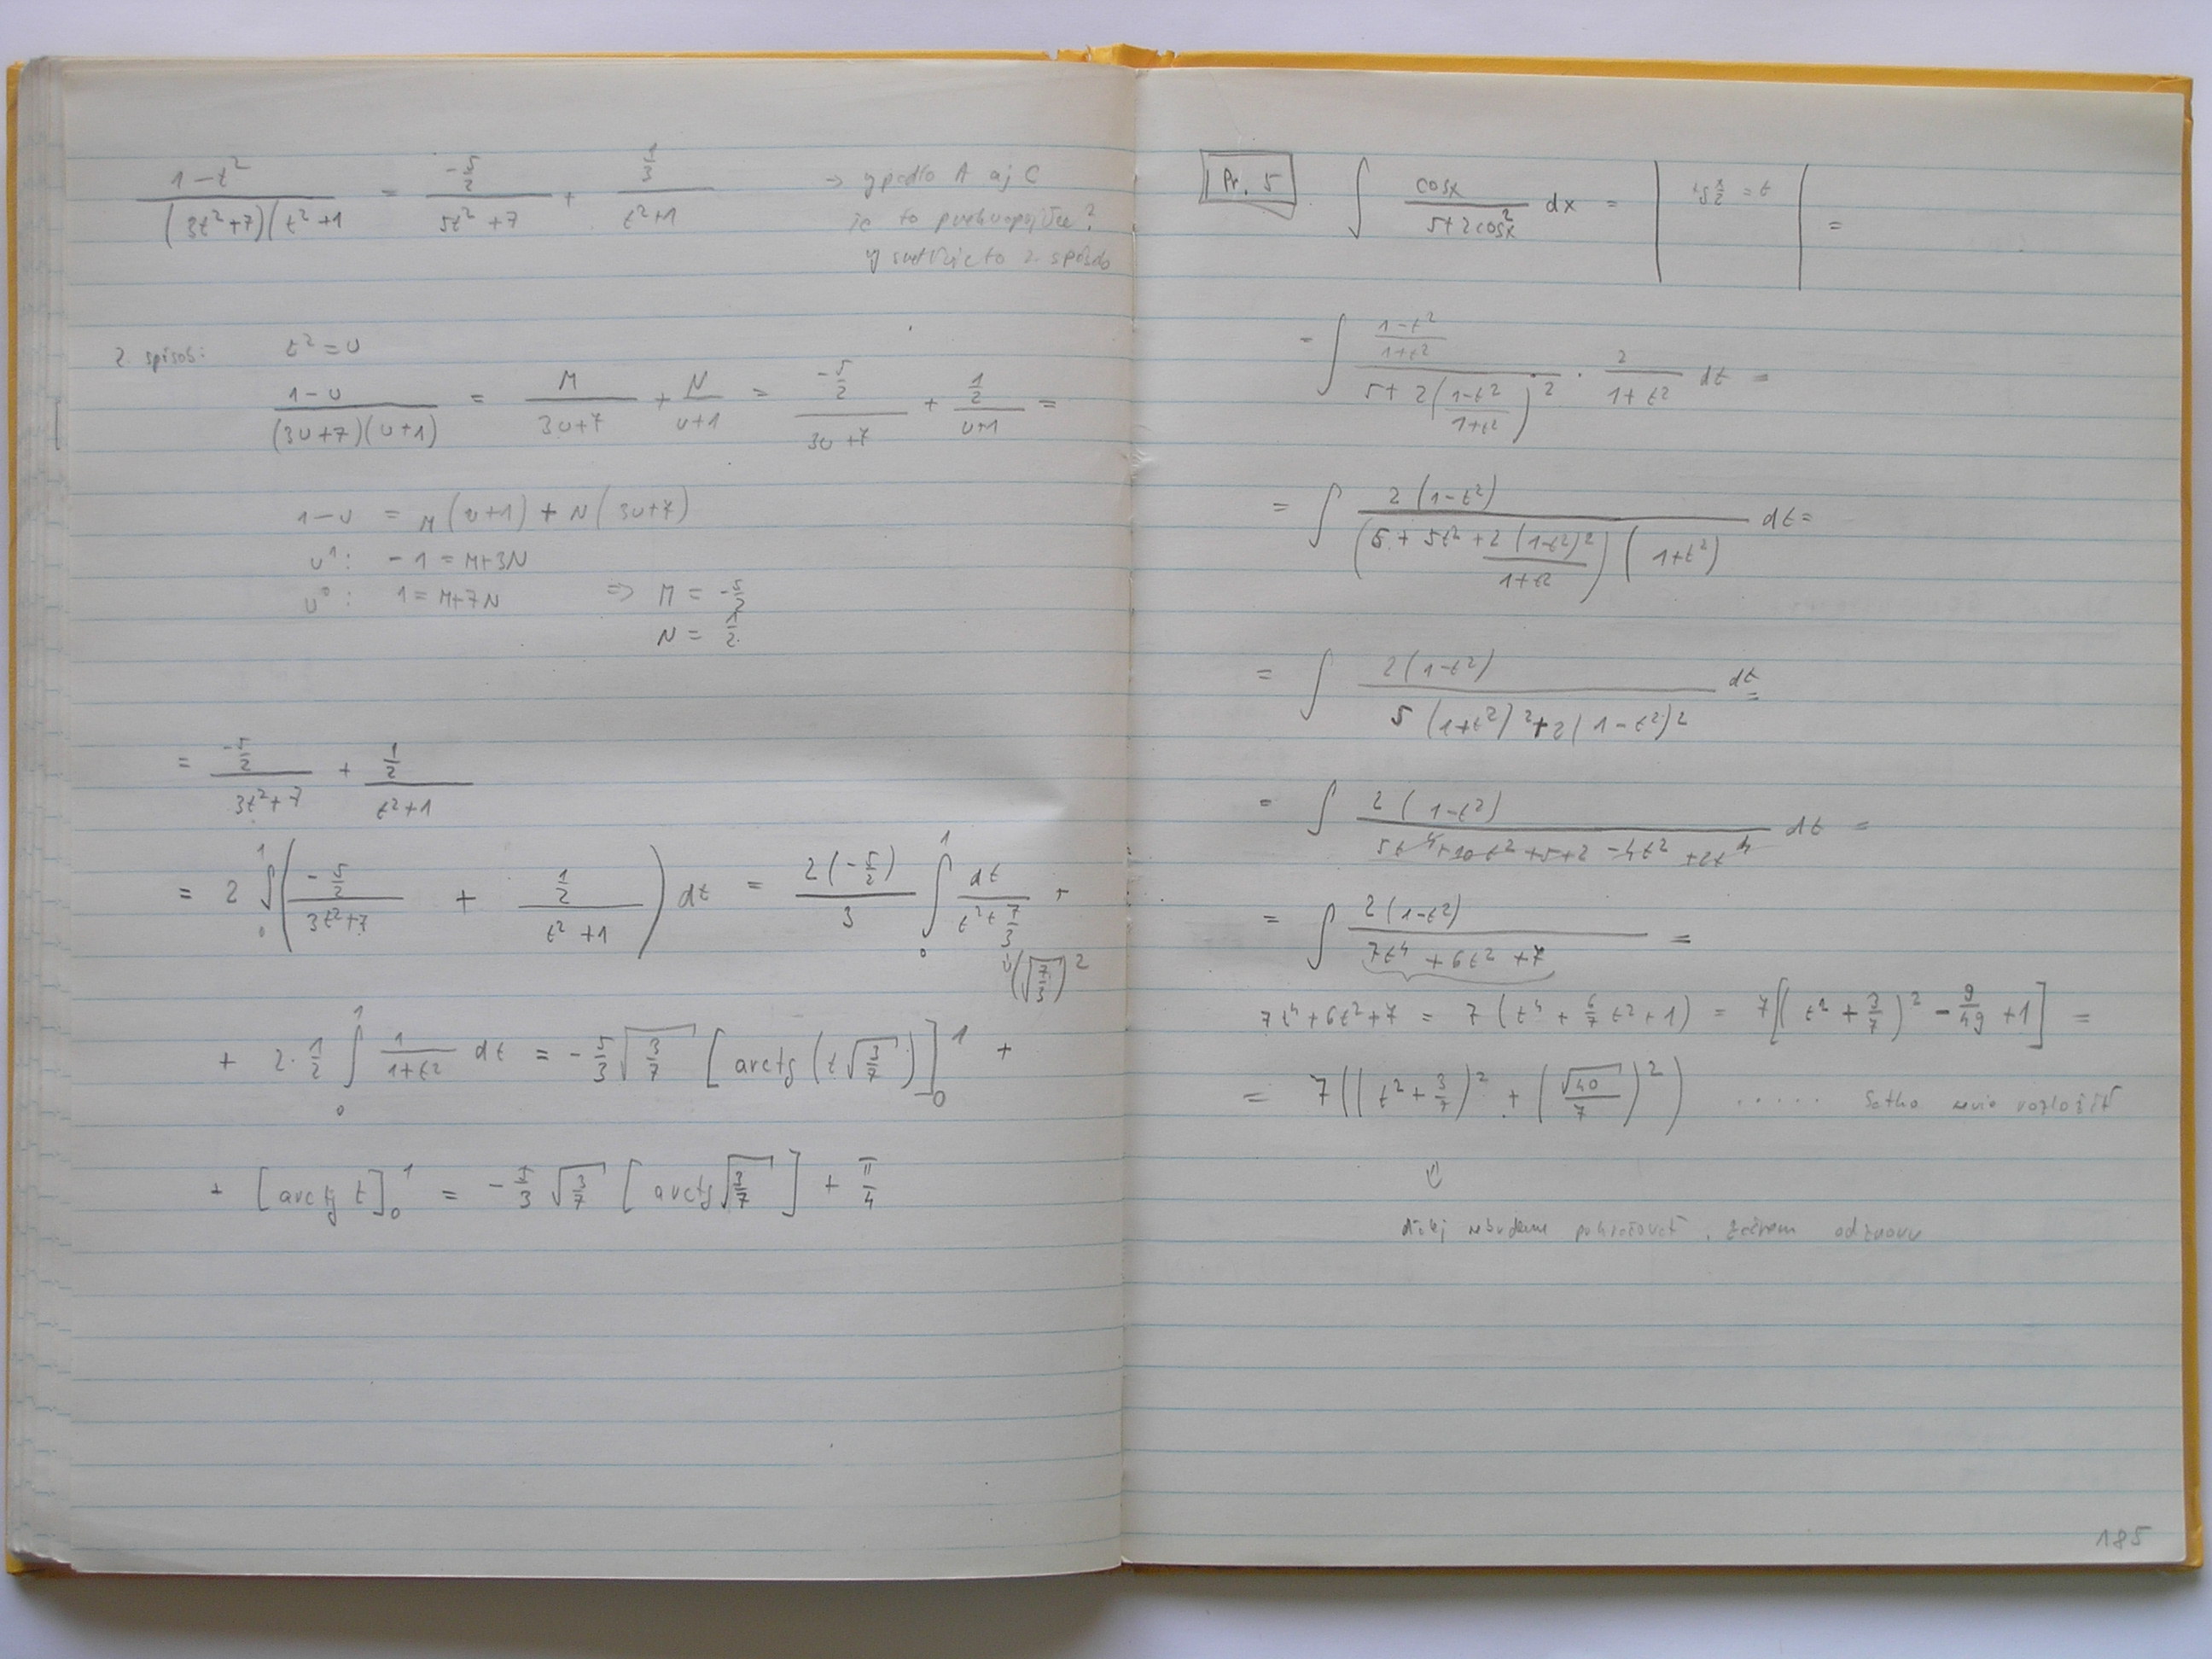 (1-t²)/((3t²+7)(t²+1) = (-5/2)/(5t²+7) + (1/3)/(t²+1) → vypadlo A aj C
je to
2. spôsob
2. spôsob: t² = u
(1-u)/((3u+7)(u+1)) = M/(3u+7) + N/(u+1) = (-5/2)/(3u+7) + (1/2)/(u+1) =
1-u = M(u+1) + N(3u+7)
u¹: -1 = M+3N
u⁰: 1 = M+7N ⇒ M = -5/2
N = 1/2
= (-5/2)/(3t²+7) + (1/2)/(t²+1)
= 2 ∫₀¹ ((-5/2)/(3t²+7) + (1/2)/(t²+1)) dt = 2(-5/2)/3 ∫₀¹ dt/(t²+7/3) +
(√(7/3))²
+ 2·1/2 ∫₀¹ 1/(1+t²) dt = -5/3 √(3/7) [arctg(t√(3/7))]₀¹ +
+ [arctg t]₀¹ = -5/3 √(3/7) [arctg √(3/7)] + π/4
Pr. 5 ∫ cosx/(5+2cos²x) dx = | tg x/2 = t | =
= ∫ ((1-t²)/(1+t²))/(5+2((1-t²)/(1+t²))²) · 2/(1+t²) dt =
= ∫ 2(1-t²)/((5+5t²+2(1-t²)²/(1+t²))(1+t²)) dt =
= ∫ 2(1-t²)/(5(1+t²)²+2(1-t²)²) dt =
= ∫ 2(1-t²)/(5t⁴+10t²+5+2-4t²+2t⁴) dt =
= ∫ 2(1-t²)/(7t⁴+6t²+7) =
7t⁴+6t²+7 = 7(t⁴+6/7 t²+1) = 7[(t²+3/7)² - 9/49 +1] =
= 7((t²+3/7)² + (√40/7)²) ..... rozložiť
⇓
ďalej nebudeme pokračovať, začnem odznovu
185